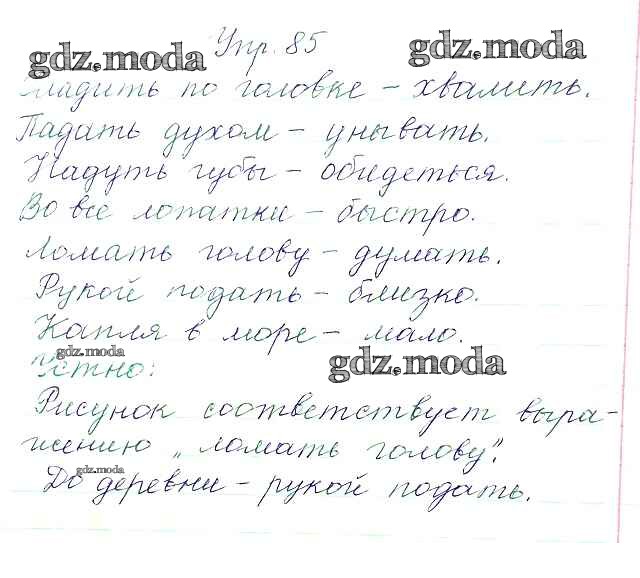 Упр. 85
gdz.moda gdz.moda
Гладить по головке – хвалить.
Падать духом – унывать.
Надуть губы – обидеться.
Во все лопатки – быстро.
Ломать голову – думать.
Рукой подать – близко.
Капля в море – мало.
gdz.moda
Устно:
gdz.moda
Рисунок соответствует выра-
жению „ломать голову".
gdz.moda
До деревни – рукой подать.